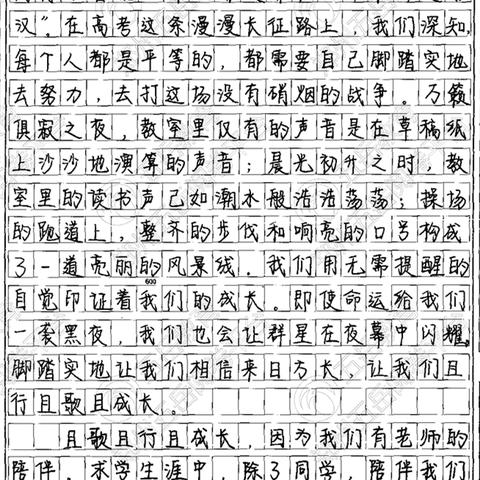 汉”。在高考这条漫漫长征路上，我们深知，
每个人都是平等的，都需要自己脚踏实地
去努力，去打这场没有硝烟的战争。万籁
俱寂之夜，教室里仅有的声音是在草稿纸
上沙沙地演算的声音；晨光初升之时，教
室里的读书声已如潮水般浩浩荡荡；操场
的跑道上，整齐的步伐和响亮的口号构成
了一道亮丽的风景线。我们用无需提醒的
600
自觉印证着我们的成长。即使命运给我们
一袭黑夜，我们也会让群星在夜幕中闪耀。
脚踏实地让我们相信来日方长，让我们且
行且歌且成长。
且歌且行且成长，因为我们有老师的
陪伴。求学生涯中，除了同学，陪伴我们